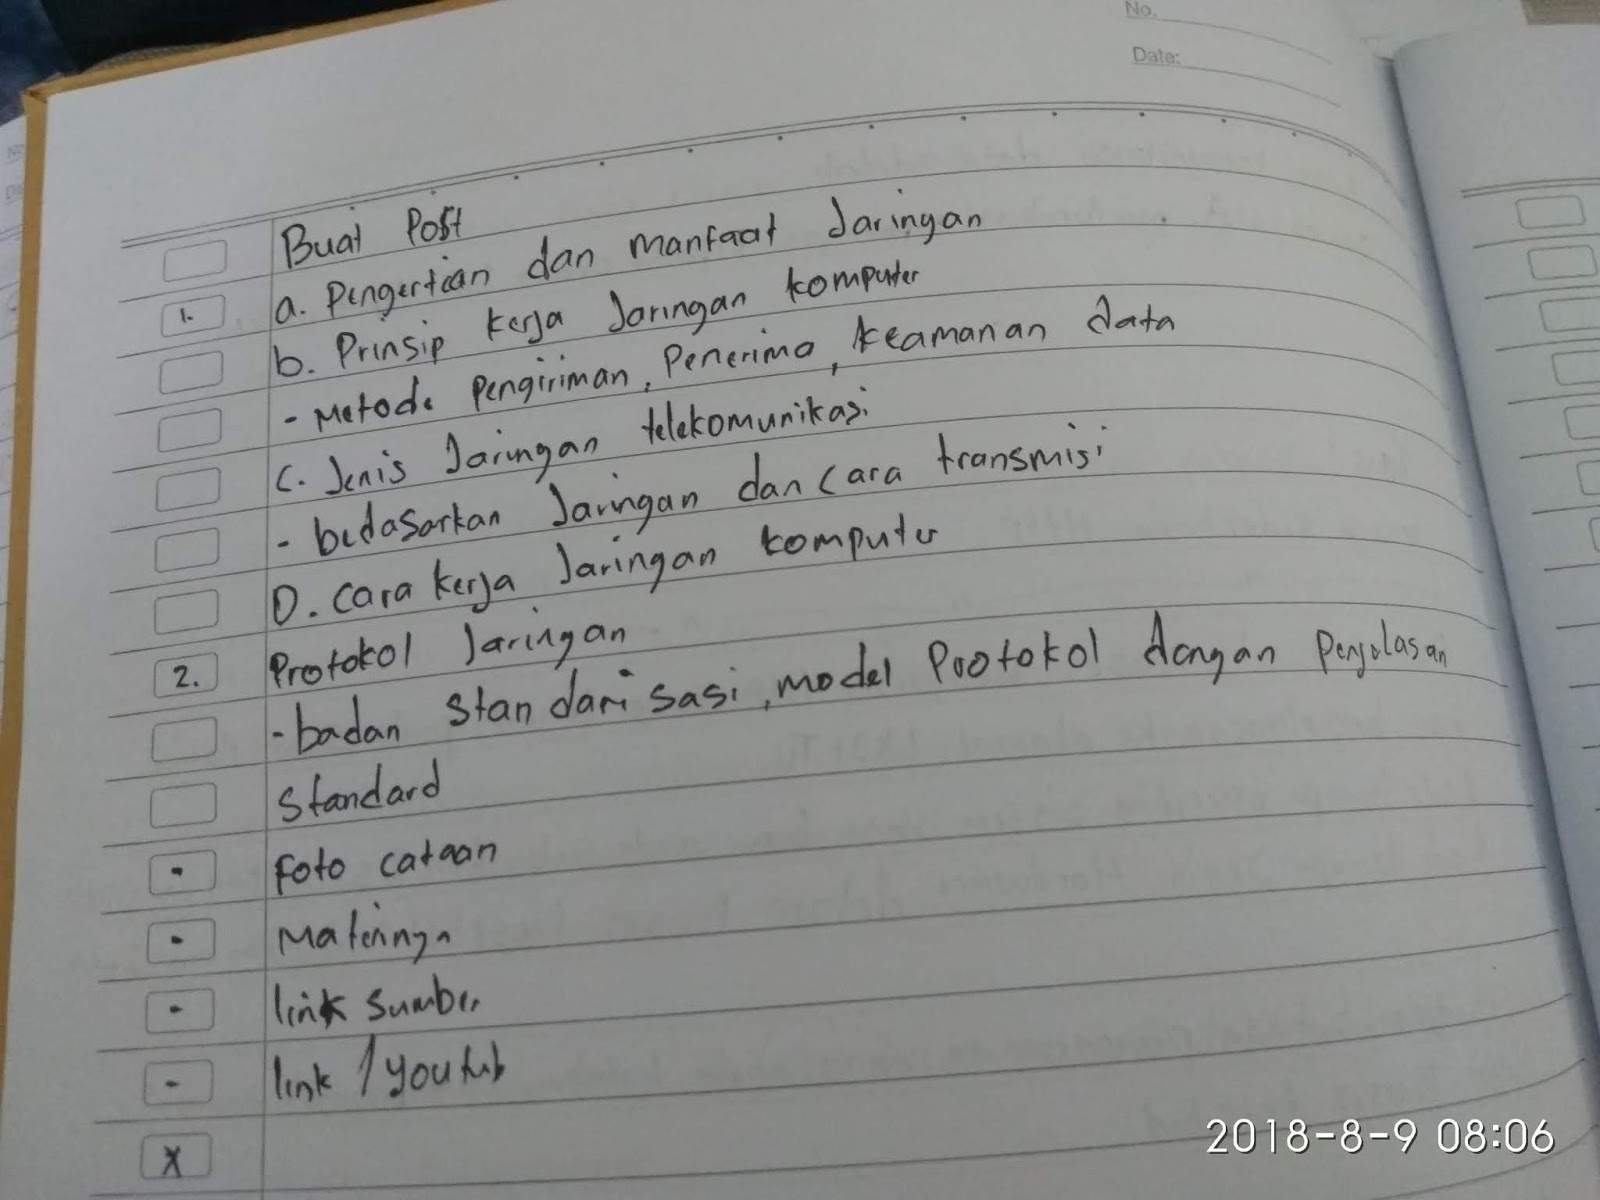 No.
Date:
Buat Post
1. a. Pengertian dan manfaat Jaringan
b. Prinsip kerja Jaringan komputer
- Metode pengiriman, Penerima, keamanan data
C. Jenis Jaringan telekomunikasi
- bedasarkan Jaringan dan cara transmisi
D. Cara kerja Jaringan komputer
2. Protokol Jaringan
- badan Standarisasi, model Protokol dengan Penjelasan
Standard
- Foto cataan
- Materinya
- link sumber
- link / youtub
X
2018-8-9 08:06